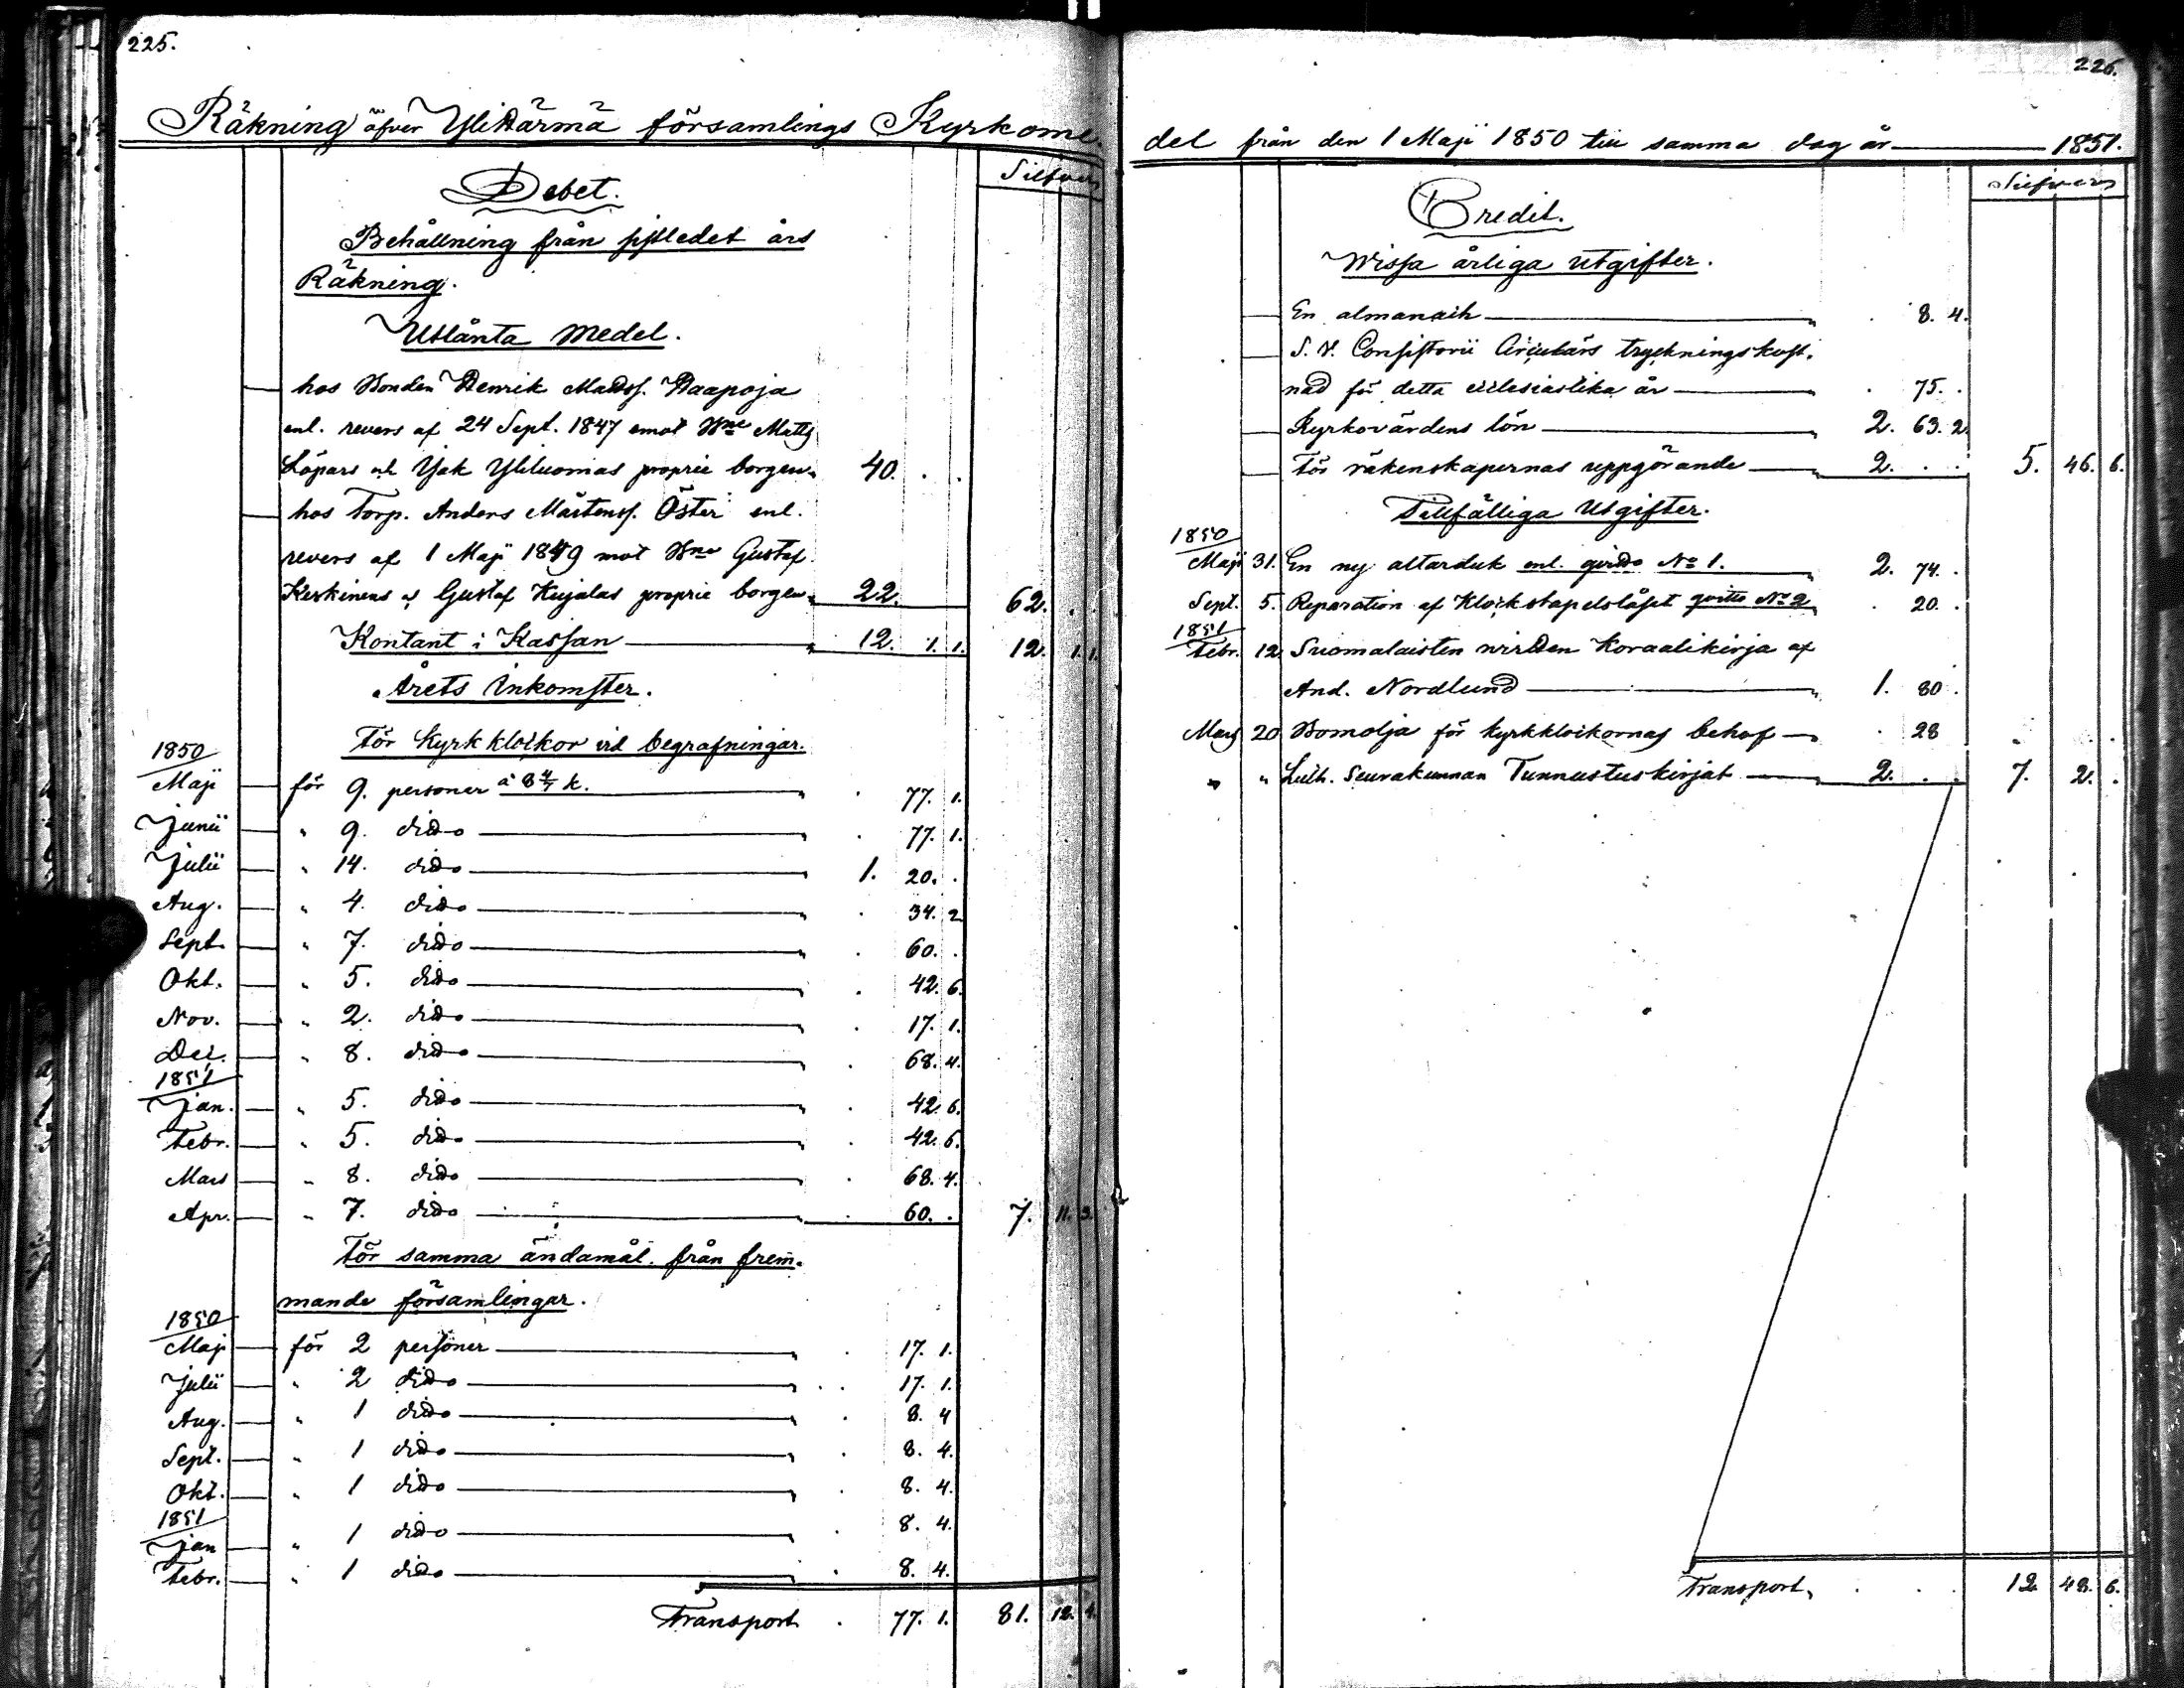 225.
Räkning öfver Ylihärmä församlings Kyrkome-
Silfver
Debet.
Behållning från sistledet års
Räkning.
Utlånta Medel.
hos Bonden Henrik Matss. Haapoja
enl. revers af 24 Sept. 1847 emot Bne Matts
Löpars och Jak Yliluomas proprie borgen 40. . .
hos Torp. Anders Mårtenss. Öster enl.
revers af 1 Maji 1849 mot Bne Gustaf
Keskinens o Gustaf Kujalas proprie borgen 22. 62. . .
Kontant i Kassan 12. 1. 1. 12. 1. 1.
Årets Inkomster.
För kyrkklockor vid begrafningar.
1850
Maji för 9. personer à 8 4/7 k. . 77. 1.
Junii " 9. dido . 77. 1.
Julii " 14. dido 1. 20. .
Aug. " 4. dido . 34. 2
Sept. " 7. dido . 60. .
Okt. " 5. dido . 42. 6.
Nov. " 2. dido . 17. 1.
Dec. " 8. dido . 68. 4.
1851
Jan. " 5. dido . 42. 6.
Febr. " 5. dido . 42. 6.
Mars " 8. dido . 68. 4.
Apr. " 7. dido . 60. . 7. 11. 3.
För samma ändamål från frem-
mande församlingar.
1850
Maji för 2 personer . 17. 1.
Julii " 2 dido . 17. 1.
Aug. " 1 dido . 8. 4
Sept. " 1 dido . 8. 4.
Okt. " 1 dido . 8. 4.
1851
Jan " 1 dido . 8. 4.
Febr. " 1 dido . 8. 4.
Transport . 77. 1. 81. 12. 4.
226.
del från den 1 Maji 1850 till samma dag år 1851.
Silfver
Credit.
Wissa årliga utgifter.
En almanach . 8. 4.
S. V. Consistorii Circulärs tryckningskost-
nad för detta ecclesiastika år . 75. .
Kyrkovärdens lön 2. 63. 2.
För räkenskapernas uppgörande 2. . . 5. 46. 6.
Tillfälliga Utgifter.
1850
Maji 31. En ny altarduk enl. qvitto No 1. 2. 74. .
Sept. 5. Reparation af Klockstapelslåset qvitto No 2 . 20. .
1851
Febr. 12. Suomalaisten virsien Koraalikirja af
And. Nordlund 1. 80 .
Mars 20 Bomolja för kyrkklockornas behof . 28
" " Luth. Seurakunnan Tunnustuskirjat 2. . . 7. 2. .
Transport, . . . 12 48. 6.